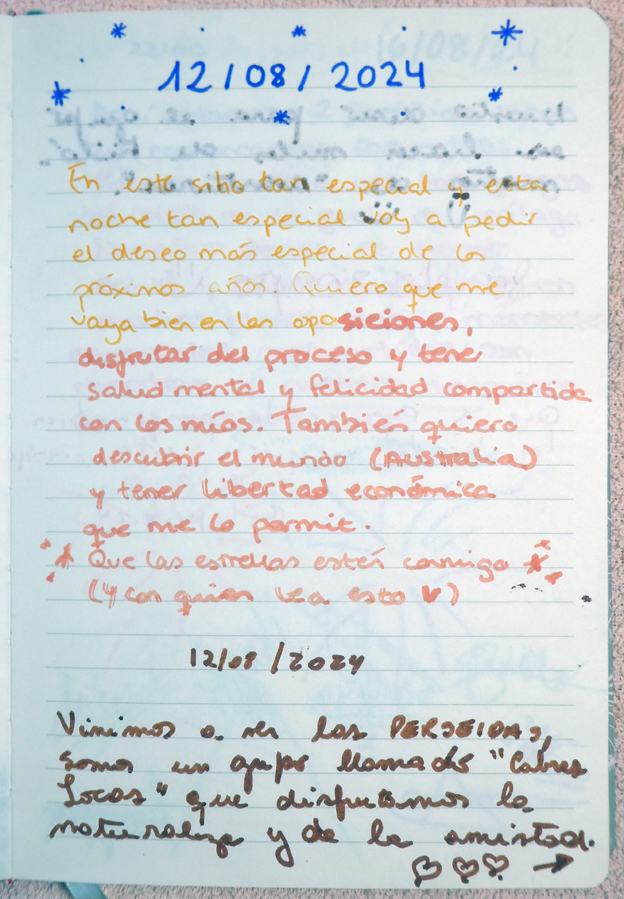 12/08/2024
En este sitio tan especial y esta
noche tan especial voy a pedir
el deseo más especial de los
próximos años. Quiero que me
vaya bien en las oposiciones,
disfrutar del proceso y tener
salud mental y felicidad compartida
con los míos. También quiero
descubrir el mundo (AUSTRALIA)
y tener libertad económica
que me lo permit.
* Que las estrellas estén conmigo *
(Y con quien lea esto ♥)
12/08/2024
Vinimos a ver las PERSEIDAS,
somos un grupo llamado "Cabras
Locas" que disfrutamos la
naturaleza y de la amistad.
♡♡♡ →